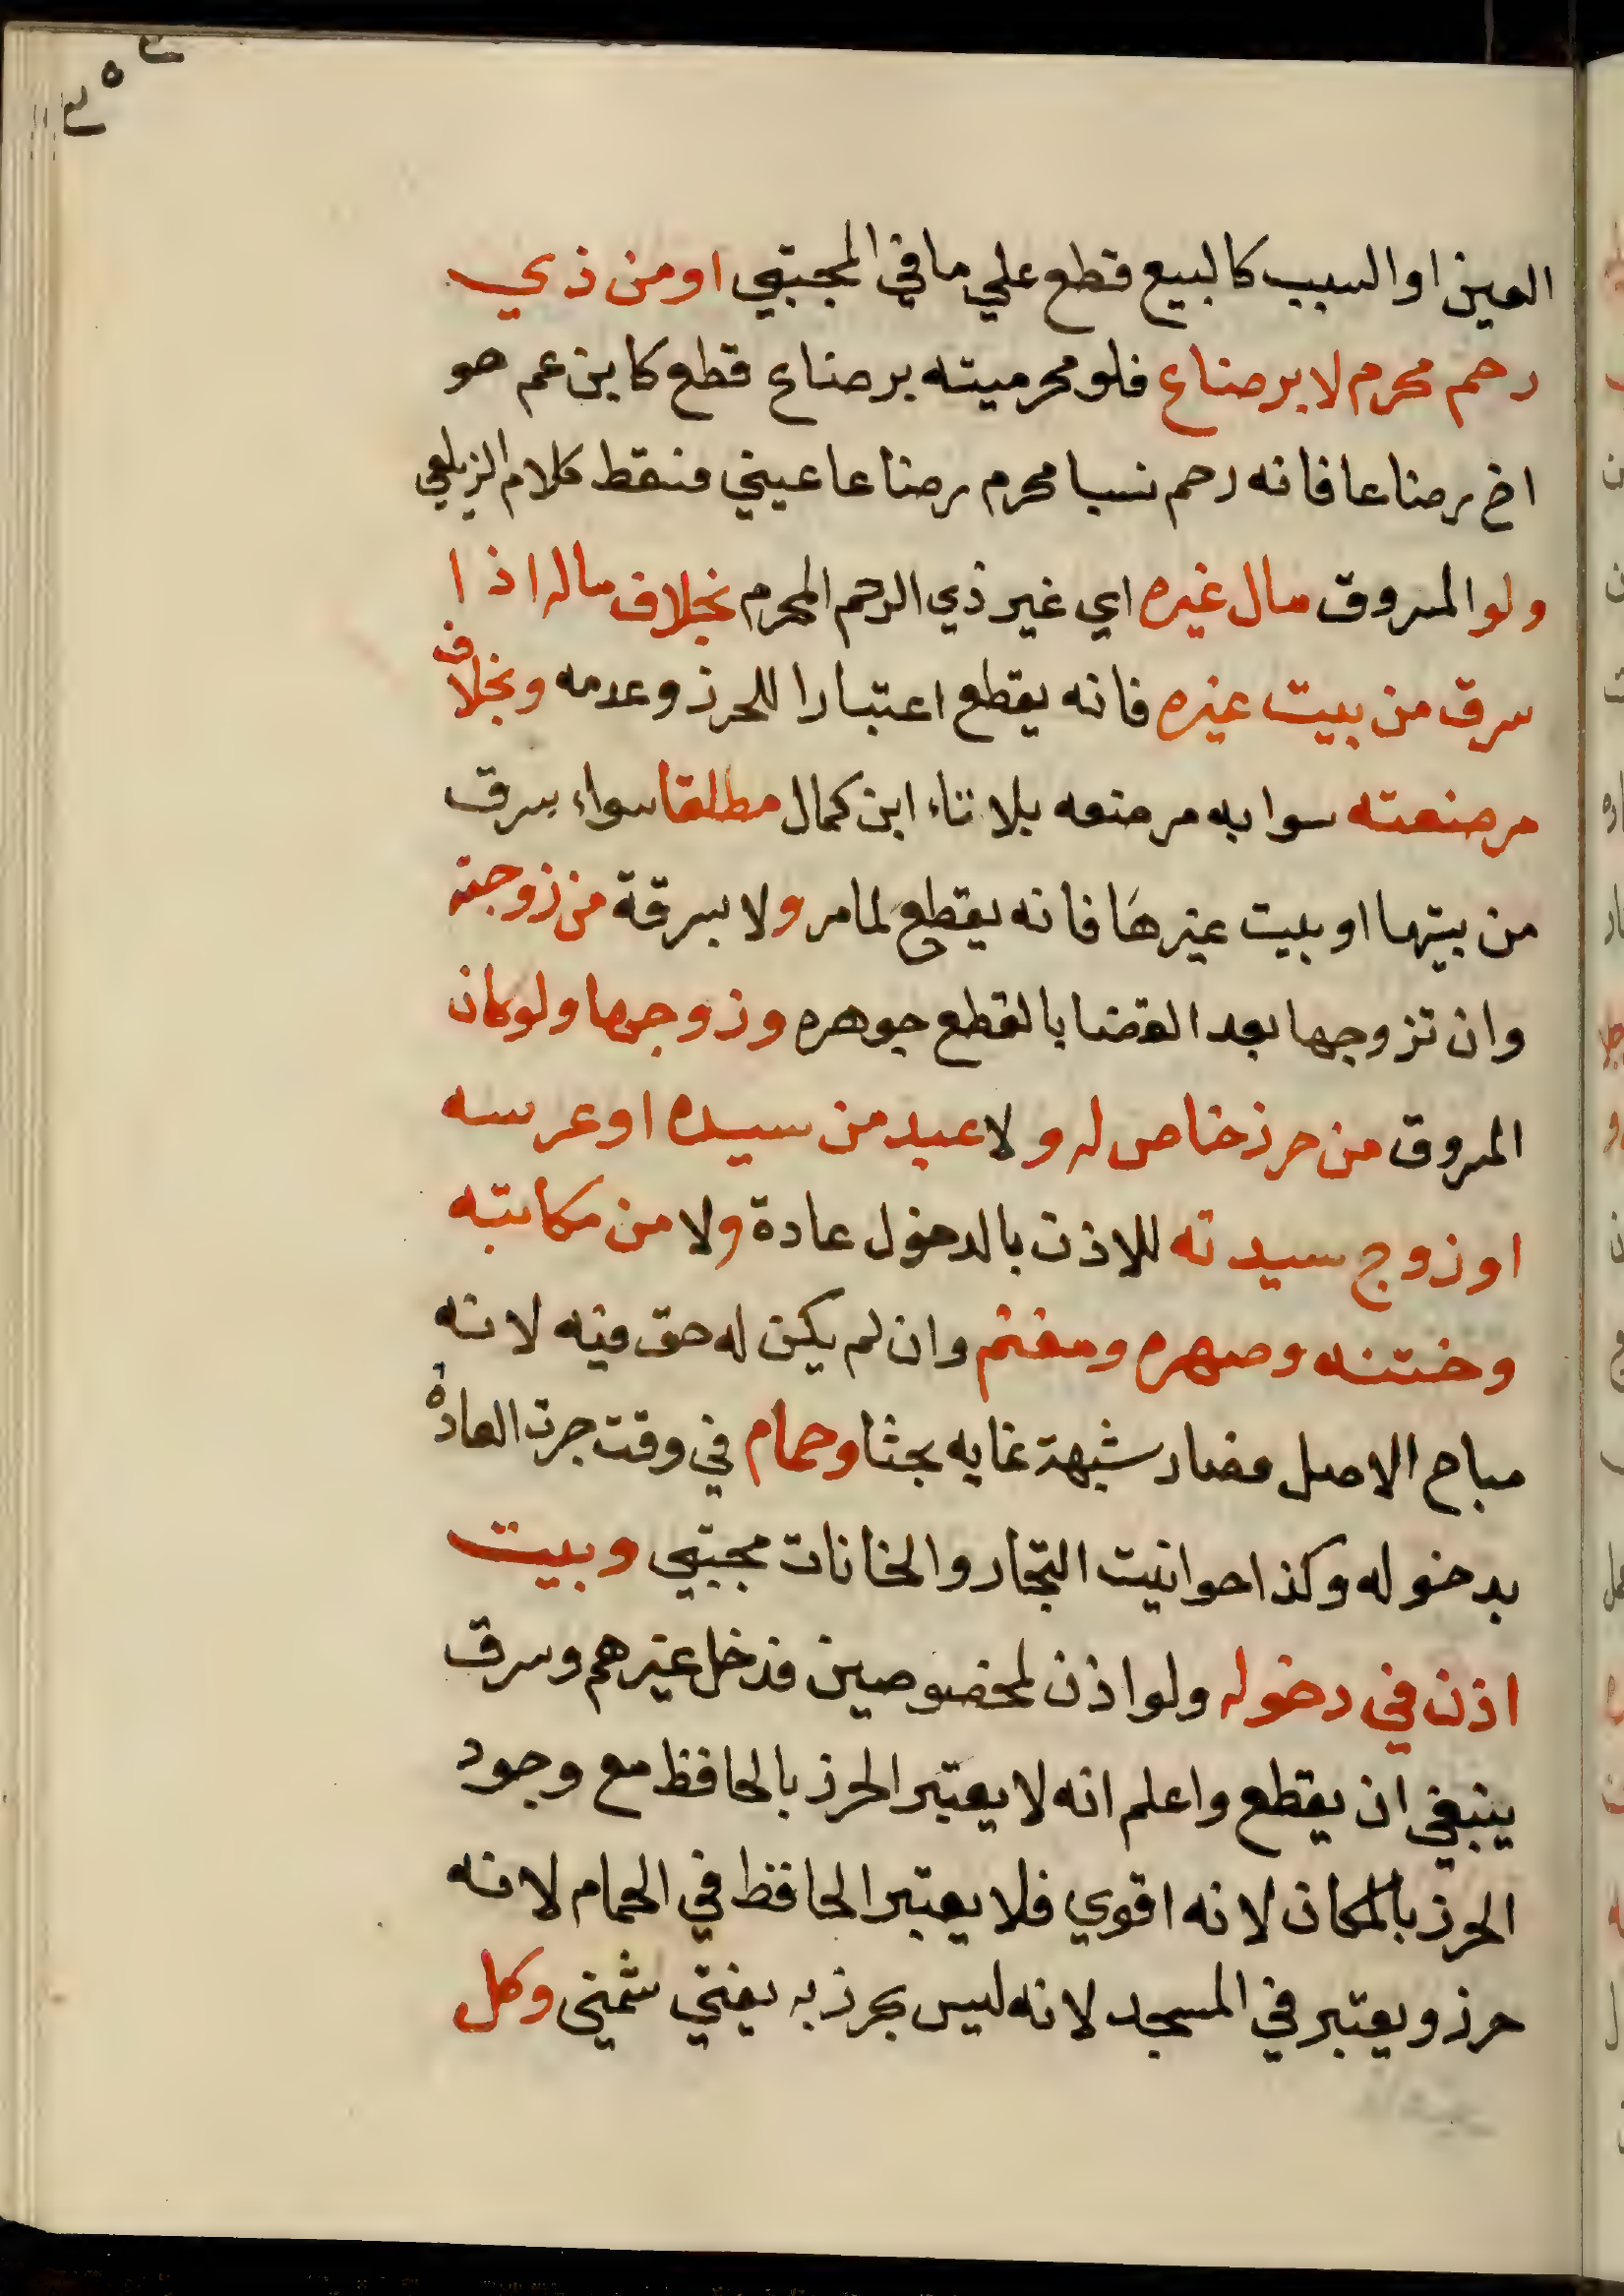 العين او السبب كالبيع قطع علي ما في المجتبي او من ذي
رحم محرم لا برضاع فلو محرميته برضاع قطع كابن عم هو
اخ رضاعا فانه رحم نسبا محرم رضاعا عيني فسقط كلام الزيلعي
ولو المسروق مال غيره اي غير ذي الرحم المحرم بخلاف ماله اذا
سرق من بيت غيره فانه يقطع اعتبارا للحرز وعدمه وبخلاف
مرضعته سوابه مرضعه بلا تاء ابن كمال مطلقا سواء سرق
من بيتها او بيت غيرها فانه يقطع لما مر ولا بسرقة من زوجته
وان تزوجها بعد القضا بالقطع جوهره وزوجها ولو كان
المسروق من حرز خاص له ولا عبد من سيده او عرسه
او زوج سيدته للاذن بالدخول عادة ولا من مكاتبه
وختنه وصهره ومغنم وان لم يكن له حق فيه لانه
مباح الاصل فصار شبهة غايه بحثا وحمام في وقت جرت العادة
بدخوله وكذا حوانيت التجار والخانات مجتبي وبيت
اذن في دخوله ولو اذن لمخصوصين فدخل غيرهم وسرق
ينبغي ان يقطع واعلم انه لا يعتبر الحرز بالحافظ مع وجود
الحرز بالمكان لانه اقوي فلا يعتبر الحافظ في الحمام لانه
حرز ويعتبر في المسجد لانه ليس بحرز به يفتي شمني وكل